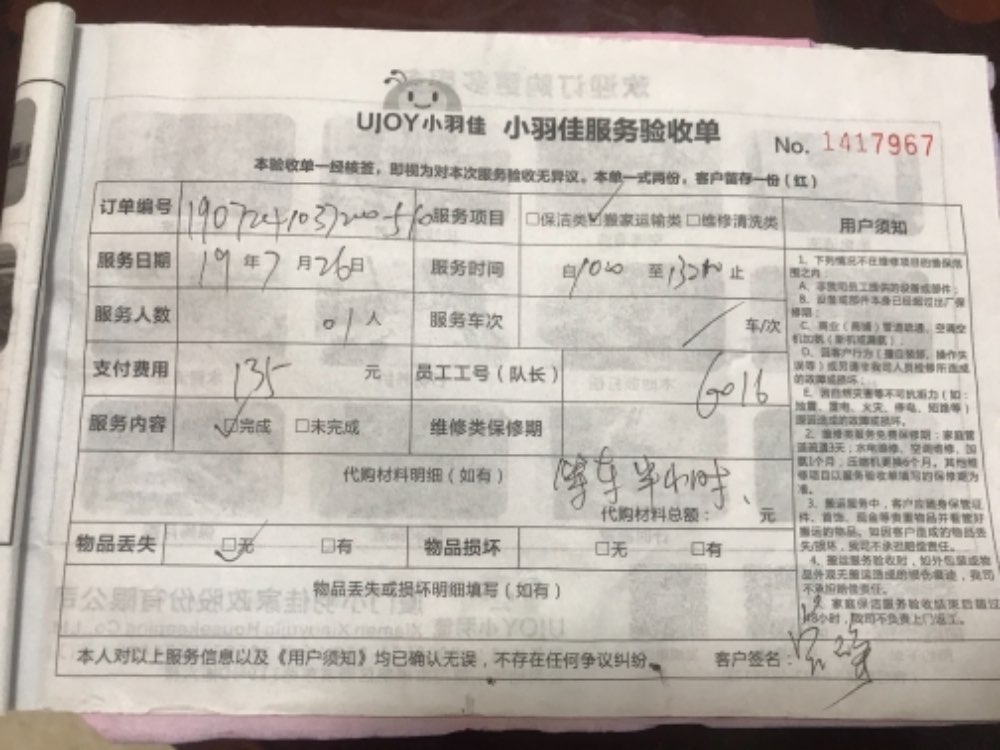 UJOY小羽佳 小羽佳服务验收单
No. 1417967
本验收单一经核签，即视为对本次服务验收无异议。本单一式两份，客户留存一份（红）
订单编号 服务项目 □保洁类☑搬家运输类□维修清洗类
服务日期 19年7月26日 服务时间 自 至 止
服务人数 01人 服务车次 / 车/次
支付费用 135 元 员工工号（队长） 6016
服务内容 ☑完成 □未完成 维修类保修期
代购材料明细（如有） 等车半小时、
代购材料总额： 元
物品丢失 ☑无 □有 物品损坏 □无 □有
物品丢失或损坏明细填写（如有）
本人对以上服务信息以及《用户须知》均已确认无误，不存在任何争议纠纷。 客户签名：
用户须知
1、下列情况不在维修项目的售保范
围之内：
A、非我司员工提供的设备或部件；
B、设备或部件本身已经超过出厂保
修期；
C、商业（商铺）管道疏通、空调空
机加氨（新机或漏氨）；
D、因客户行为（擅自装卸、操作失
误等）或另请非我司人员检修所造成
的故障或损坏；
E、因自然灾害等不可抗拒力（如：
地震、雷电、火灾、停电、短路等）
原因造成的故障或损坏。
2、维修类服务免费保修期：家庭管
道疏通3天；水电维修、空调维修、加
氨1个月；压缩机更换6个月。其他维
修项目以服务验收单填写的保修期为
准。
3、搬运服务中，客户应随身保管证
件、首饰、现金等贵重物品并看管好
搬运的物品。如因客户造成的物品丢
失/损坏，我司不承担赔偿责任。
4、搬运服务验收时，如外包装或物
品外观无搬运造成的损伤痕迹，我司
不承担赔偿责任。
家庭保洁服务验收结束后超过
48小时，我司不负责上门返工。